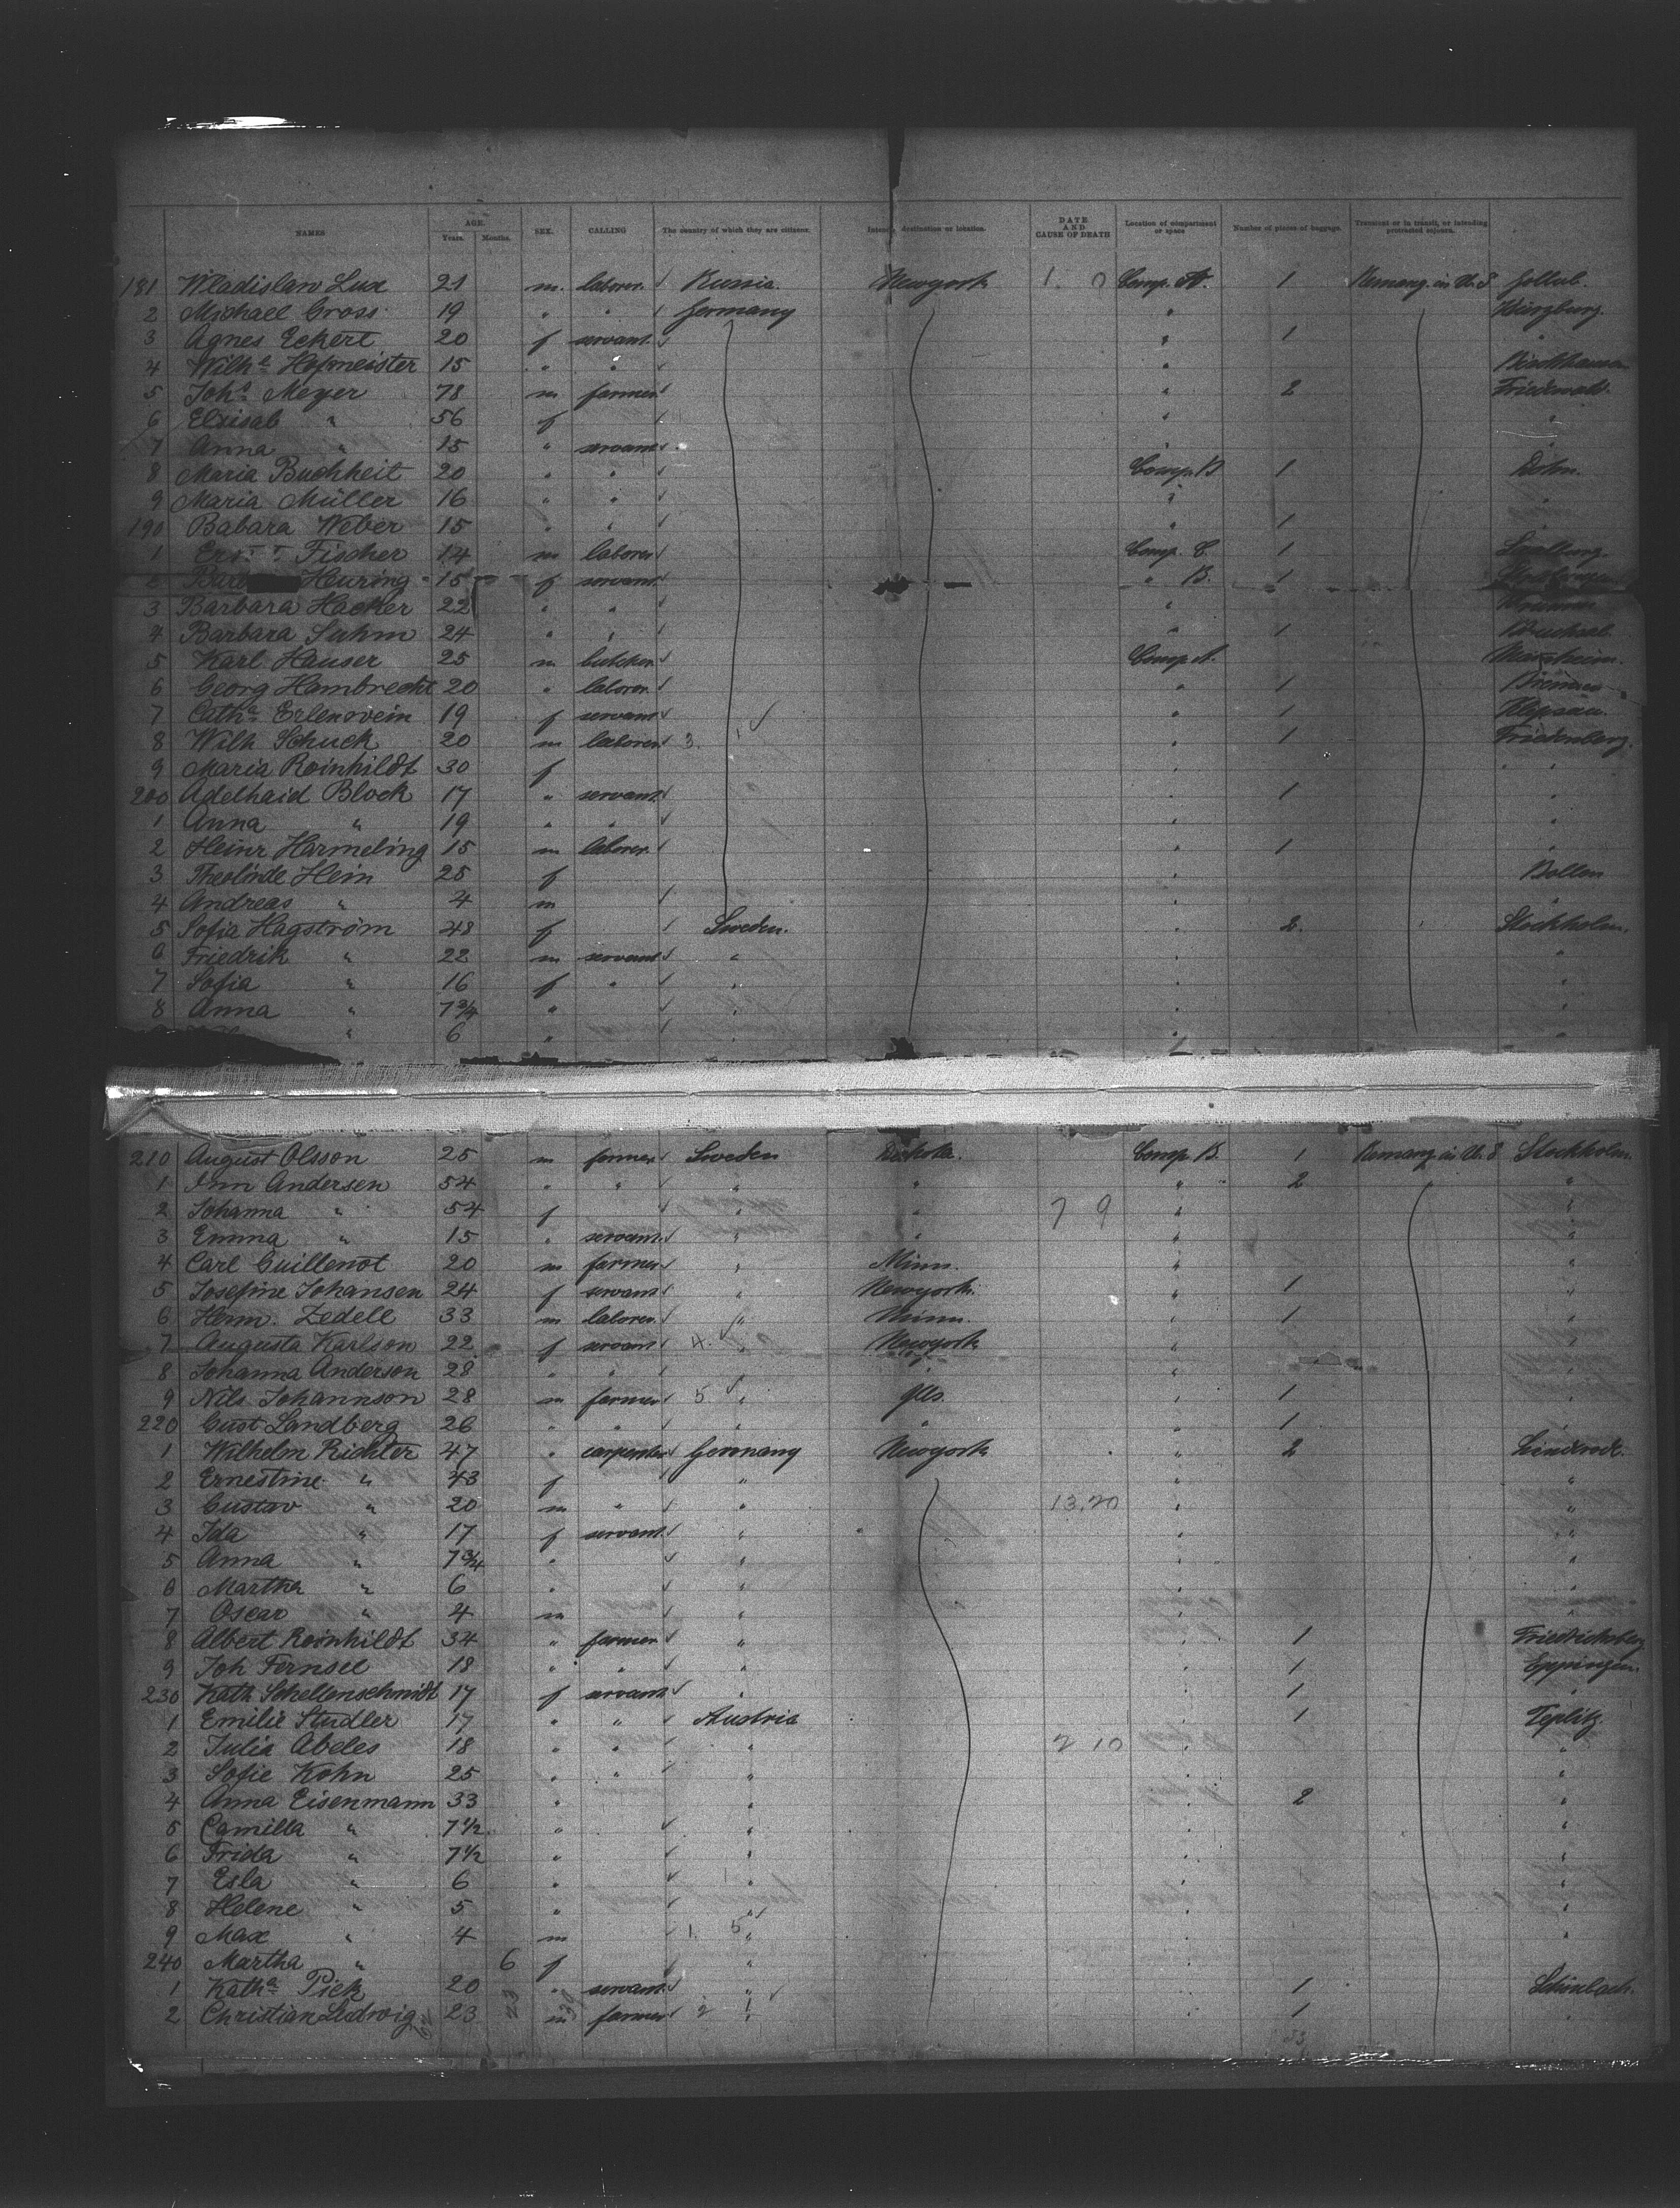 NAMES AGE. Years. Months. SEX. CALLING The country of which they are citizens. destination or location. DATE AND CAUSE OF DEATH Location of compartment or space Number of pieces of baggage. Transient or in transit, or intending protracted sojourn.
181 Wladislaw Lux 21 m. laborer. Russia. Newyork 1. 0 Comp. A. 1 Remang. in U. S Gollub.
2 Michael Gross 19 " " Germany " Würzburg.
3 Agnes Eckert 20 f servant. " 1 "
4 Wilhe Hofmeister 15 " " "
5 Johs Meyer 78 m farmer " 2 Friedewald.
6 Elxisab " 56 f " "
7 Anna " 15 " servant " "
8 Maria Buchheit 20 " " Comp. B 1 Dohn.
9 Maria Müller 16 " " " "
190 Babara Weber 15 " " " 1 "
1 Fischer 14 m laborer Comp. C. 1
2 Heuring 15 f servant. " B. 1
3 Barbara Hacker 22 " " "
4 Barbara Suhm 24 " " " 1 Bruchsal.
5 Karl Hauser 25 m butcher. Comp. A. Manheim.
6 Georg Hambrecht 20 " laborer. " 1 Bremen
7 Catha Erlenwein 19 f servant " 1
8 Wilh Schuck 20 m laborer 3. " 1 Friedenberg.
9 Maria Reinhildt 30 f " "
200 Adelhaid Block 17 " servant. " 1 "
1 Anna " 19 " " " "
2 Heinr Harmeling 15 m laborer. " 1 "
3 Theolinde Hein 25 f " Bollen
4 Andreas " 4 m " "
5 Sofia Hagström 48 f Sweden. " 2. Stockholm.
6 Friedrik " 22 m servant " " "
7 Sofia " 16 f " " " "
8 Anna " 7 3/4 " " " "
" 6 " " " "
210 August Olsson 25 m farmer Sweden Dakota. Comp. B. 1 Remang. in U. S Stockholm.
1 Andersen 54 " " " " " 2 "
2 Johanna " 54 f " " 7 9 " "
3 Emma " 15 " servant. " " " "
4 Carl Guillenot 20 m farmer " Minn. " "
5 Josefine Johansen 24 f servant " Newyork. " 1 "
6 Herm. Zedell 33 m laborer. " Minn. " 1 "
7 Augusta Karlson 22 f servant 4. " Newyork " "
8 Johanna Anderson 28 " " " " " "
9 Nils Johannson 28 m farmer 5 " Ills. " 1 "
220 Gust Landberg 26 " " " " " 1 "
1 Wilhelm Richter 47 " carpenter Germany Newyork " 2
2 Ernestine " 43 f " " "
3 Gustav " 20 m " " 13,20 " "
4 Ida " 17 f servant. " " "
5 Anna " 7 3/4 " " " "
6 Martha " 6 " " " "
7 Oscar " 4 m " " "
8 Albert Reinhildt 34 " farmer " " 1 Friedrichsberg
9 Joh Fernsel 18 " " " " 1 Eppingen.
230 Kath Schellenschmidt 17 f servant " " 1 "
1 Emilie Studler 17 " " Austria " 1 Teplitz.
2 Julia Abeles 18 " " " 2 10 " "
3 Sofie Kohn 25 " " " " "
4 Anna Eisenmann 33 " " " 2 "
5 Camilla " 7 1/2 " " " "
6 Frida " 7 1/2 " " " "
7 Esla " 6 " " " "
8 Helene " 5 " " " "
9 Max " 4 m 1. 5 " " "
240 Martha " 6 f " " "
1 Katha Pick 20 " servant. " " 1 Schönbach.
2 Christian Ludwig 23 m farmer 2 " " 1 "